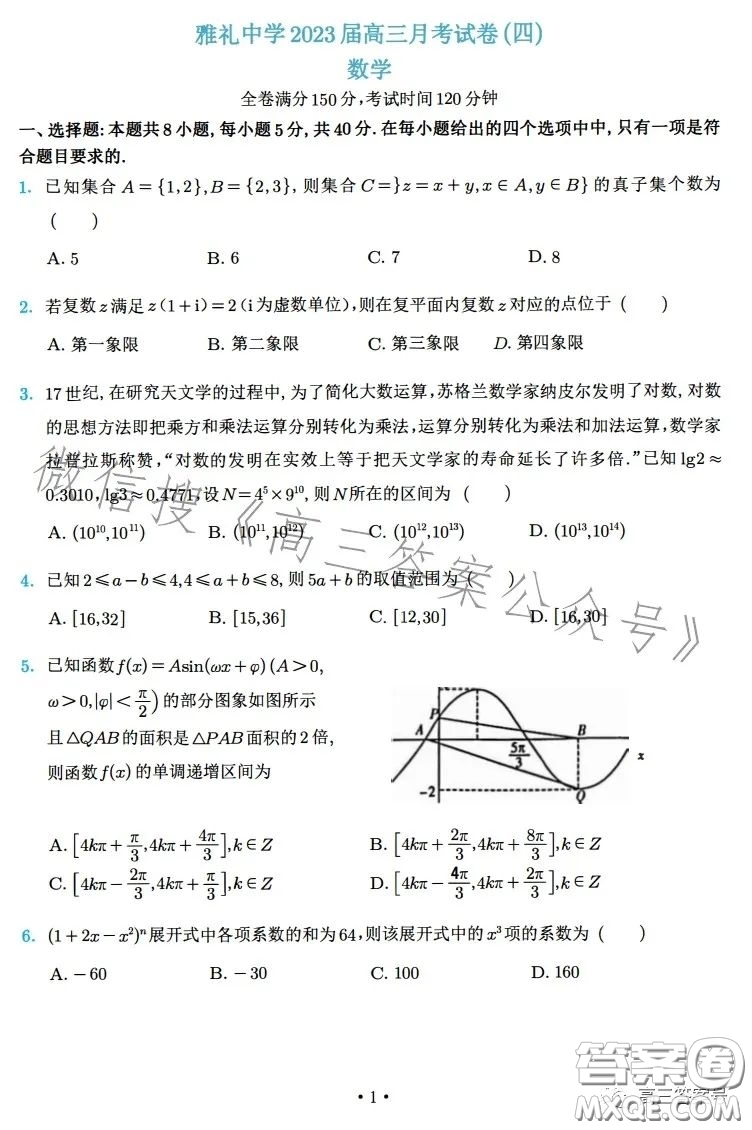 雅礼中学2023届高三月考试卷(四)
数学
全卷满分150分,考试时间120分钟
一、选择题:本题共8小题,每小题5分,共40分.在每小题给出的四个选项中中,只有一项是符
合题目要求的.
1. 已知集合 A={1,2},B={2,3}, 则集合 C=}z=x+y,x∈A,y∈B} 的真子集个数为
( )
A. 5 B. 6 C. 7 D. 8
2. 若复数z满足z(1+i)=2(i为虚数单位),则在复平面内复数z对应的点位于 ( )
A. 第一象限 B. 第二象限 C. 第三象限 D. 第四象限
3. 17世纪,在研究天文学的过程中,为了简化大数运算,苏格兰数学家纳皮尔发明了对数,对数
的思想方法即把乘方和乘法运算分别转化为乘法,运算分别转化为乘法和加法运算,数学家
拉普拉斯称赞,“对数的发明在实效上等于把天文学家的寿命延长了许多倍.”已知lg2≈
0.3010,lg3≈0.4771,设N=4⁵×9¹⁰, 则N所在的区间为 ( )
A. (10¹⁰,10¹¹) B. (10¹¹,10¹²) C. (10¹²,10¹³) D. (10¹³,10¹⁴)
4. 已知2≤a-b≤4,4≤a+b≤8, 则5a+b的取值范围为 ( )
A. [16,32] B. [15,36] C. [12,30] D. [16,30]
5. 已知函数f(x)=Asin(ωx+φ)(A>0,
ω>0,|φ|<π/2)的部分图象如图所示
且△QAB的面积是△PAB面积的2倍,
则函数f(x)的单调递增区间为
P
A
B
5π/3
x
-2
Q
A. [4kπ+π/3,4kπ+4π/3],k∈Z B. [4kπ+2π/3,4kπ+8π/3],k∈Z
C. [4kπ-2π/3,4kπ+π/3],k∈Z D. [4kπ-4π/3,4kπ+2π/3],k∈Z
6. (1+2x-x²)ⁿ展开式中各项系数的和为64,则该展开式中的x³项的系数为 ( )
A. -60 B. -30 C. 100 D. 160
微信搜《高三答案公众号》
答案卷
高三答案号
MXQE.COM
• 1 •